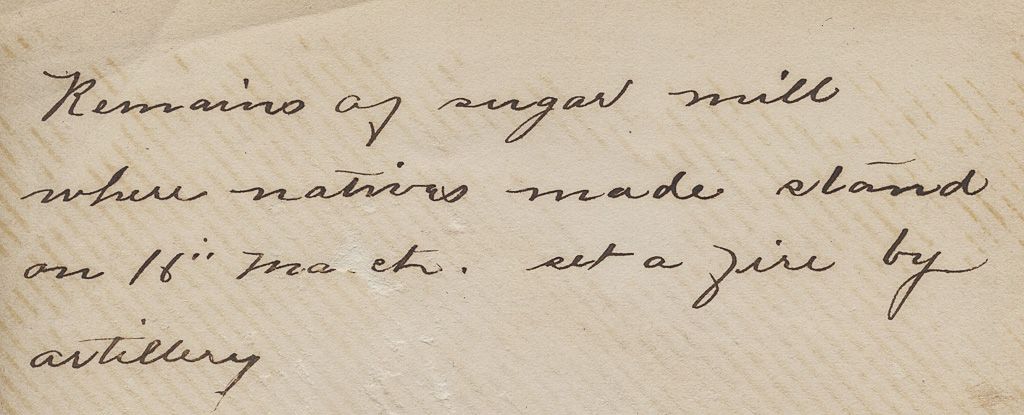 Remains of sugar mill
where natives made stand
on 18" March. set a fire by
artillery